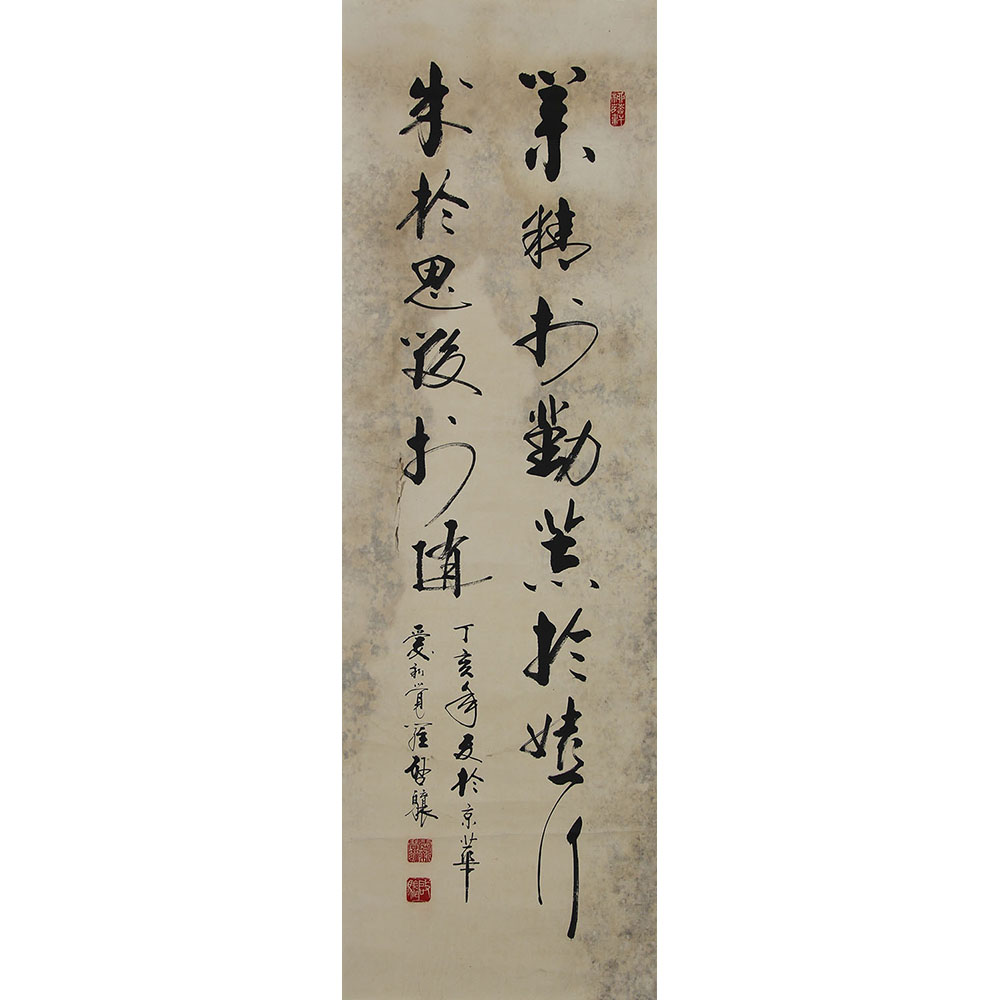 業精於勤荒於嬉行
成於思毀於隨
丁亥年夏於京華
愛新覺羅啟驤